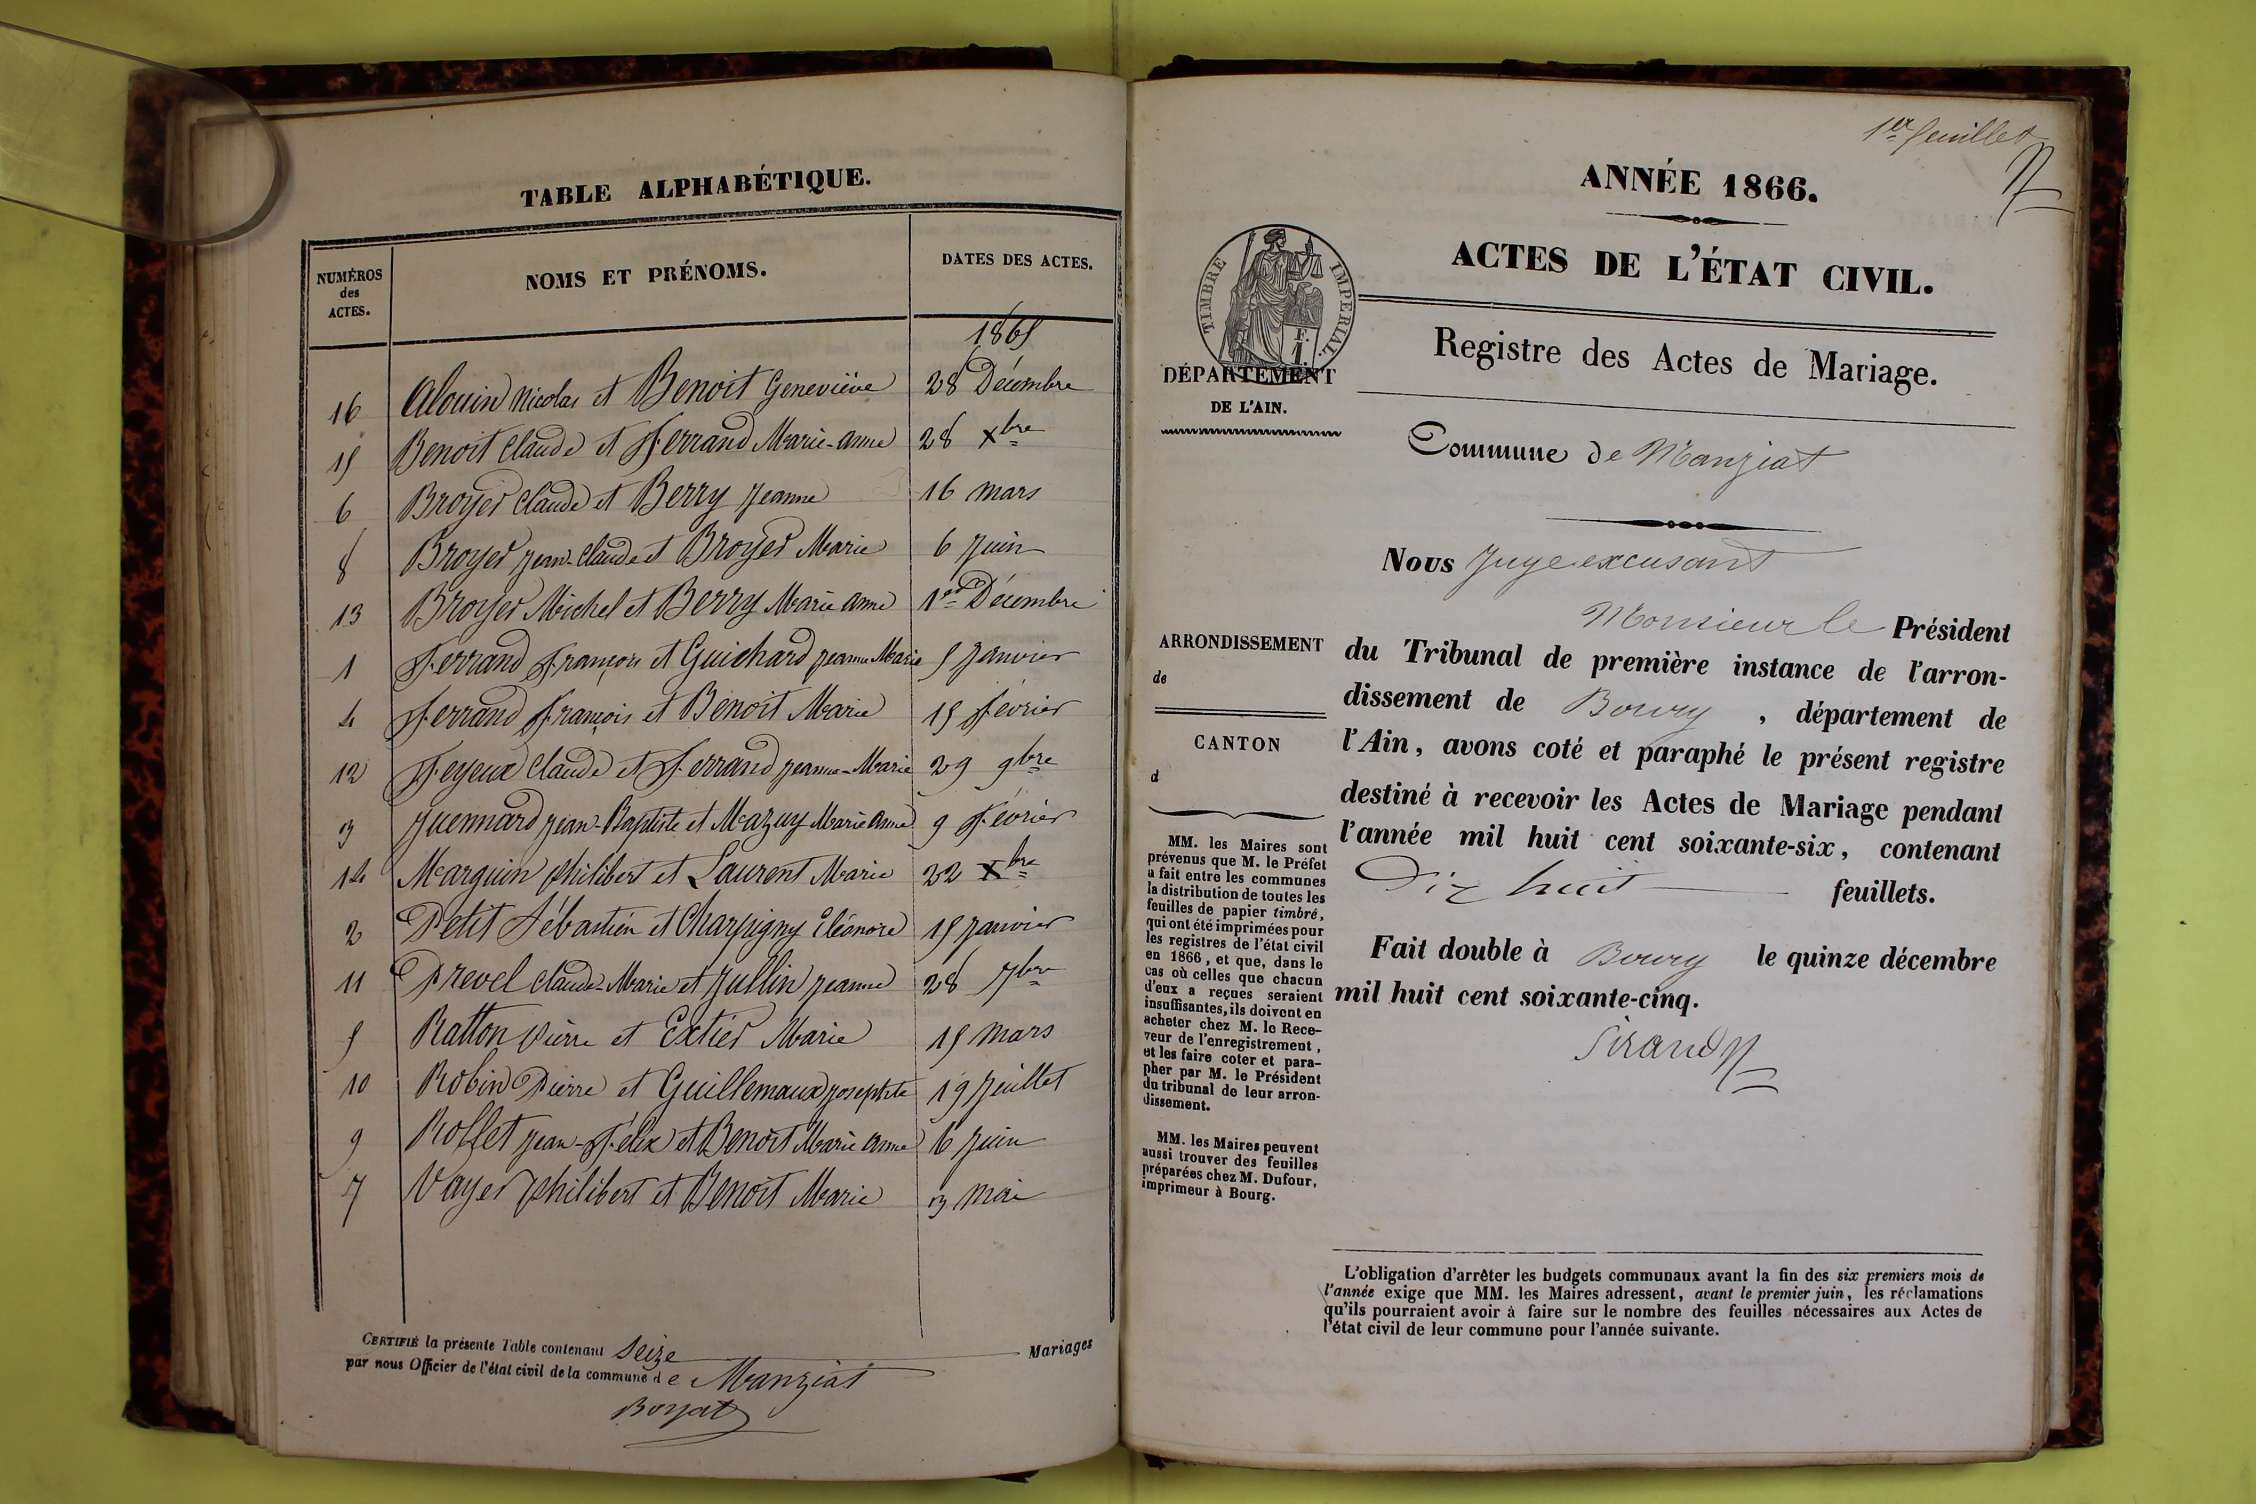 TABLE ALPHABÉTIQUE.
NUMÉROS des ACTES. NOMS ET PRÉNOMS. DATES DES ACTES.
1865
16 Alouin Nicolas et Benoit Geneviève 28 Décembre
15 Benoit Claude et Ferrand Marie-anne 28 Xbre
6 Broyer Claude et Berry Jeanne 16 mars
8 Broyer Jean-Claude et Broyer Marie 6 Juin
13 Broyer Michel et Berry Marie anne 1er Décembre
1 Ferrand François et Guichard Jeanne Marie 5 Janvier
4 Ferrand François et Benoit Marie 15 Février
12 Feyeux Claude et Ferrand Jeanne-Marie 29 9bre
3 Guennard Jean-Baptiste et Mazuy Marie anne 9 Février
14 Marguin Philibert et Laurent Marie 22 Xbre
2 Petit Sébastien et Charpigny Eléonore 15 Janvier
11 Prevel Claude-Marie et Jullin Jeanne 28 7bre
5 Ratton Pierre et Extier Marie 15 mars
10 Robin Pierre et Guillemaux Josephte 19 Juillet
9 Rollet Jean-Félix et Benoit Marie anne 6 Juin
7 Vayer Philibert et Benoit Marie 3 Mai
CERTIFIÉ la présente Table contenant Seize Mariages
par nous Officier de l'état civil de la commune de Manziat
Boyat
1er feuillet
ANNÉE 1866.
ACTES DE L'ÉTAT CIVIL.
TIMBRE IMPERIAL.
F.
1.
DÉPARTEMENT
DE L'AIN.
Registre des Actes de Mariage.
Commune de Manziat
Nous Juge excusant
Monsieur le Président
du Tribunal de première instance de l'arron-
dissement de Bourg, département de
l'Ain, avons coté et paraphé le présent registre
destiné à recevoir les Actes de Mariage pendant
l'année mil huit cent soixante-six, contenant
Dix huit feuillets.
Fait double à Bourg le quinze décembre
mil huit cent soixante-cinq.
Sirand
ARRONDISSEMENT
de
CANTON
d
MM. les Maires sont
prévenus que M. le Préfet
a fait entre les communes
la distribution de toutes les
feuilles de papier timbré,
qui ont été imprimées pour
les registres de l'état civil
en 1866, et que, dans le
cas où celles que chacun
d'eux a reçues seraient
insuffisantes, ils doivent en
acheter chez M. le Rece-
veur de l'enregistrement,
et les faire coter et para-
pher par M. le Président
du tribunal de leur arron-
dissement.
MM. les Maires peuvent
aussi trouver des feuilles
préparées chez M. Dufour,
imprimeur à Bourg.
L'obligation d'arrêter les budgets communaux avant la fin des six premiers mois de
l'année exige que MM. les Maires adressent, avant le premier juin, les réclamations
qu'ils pourraient avoir à faire sur le nombre des feuilles nécessaires aux Actes de
l'état civil de leur commune pour l'année suivante.